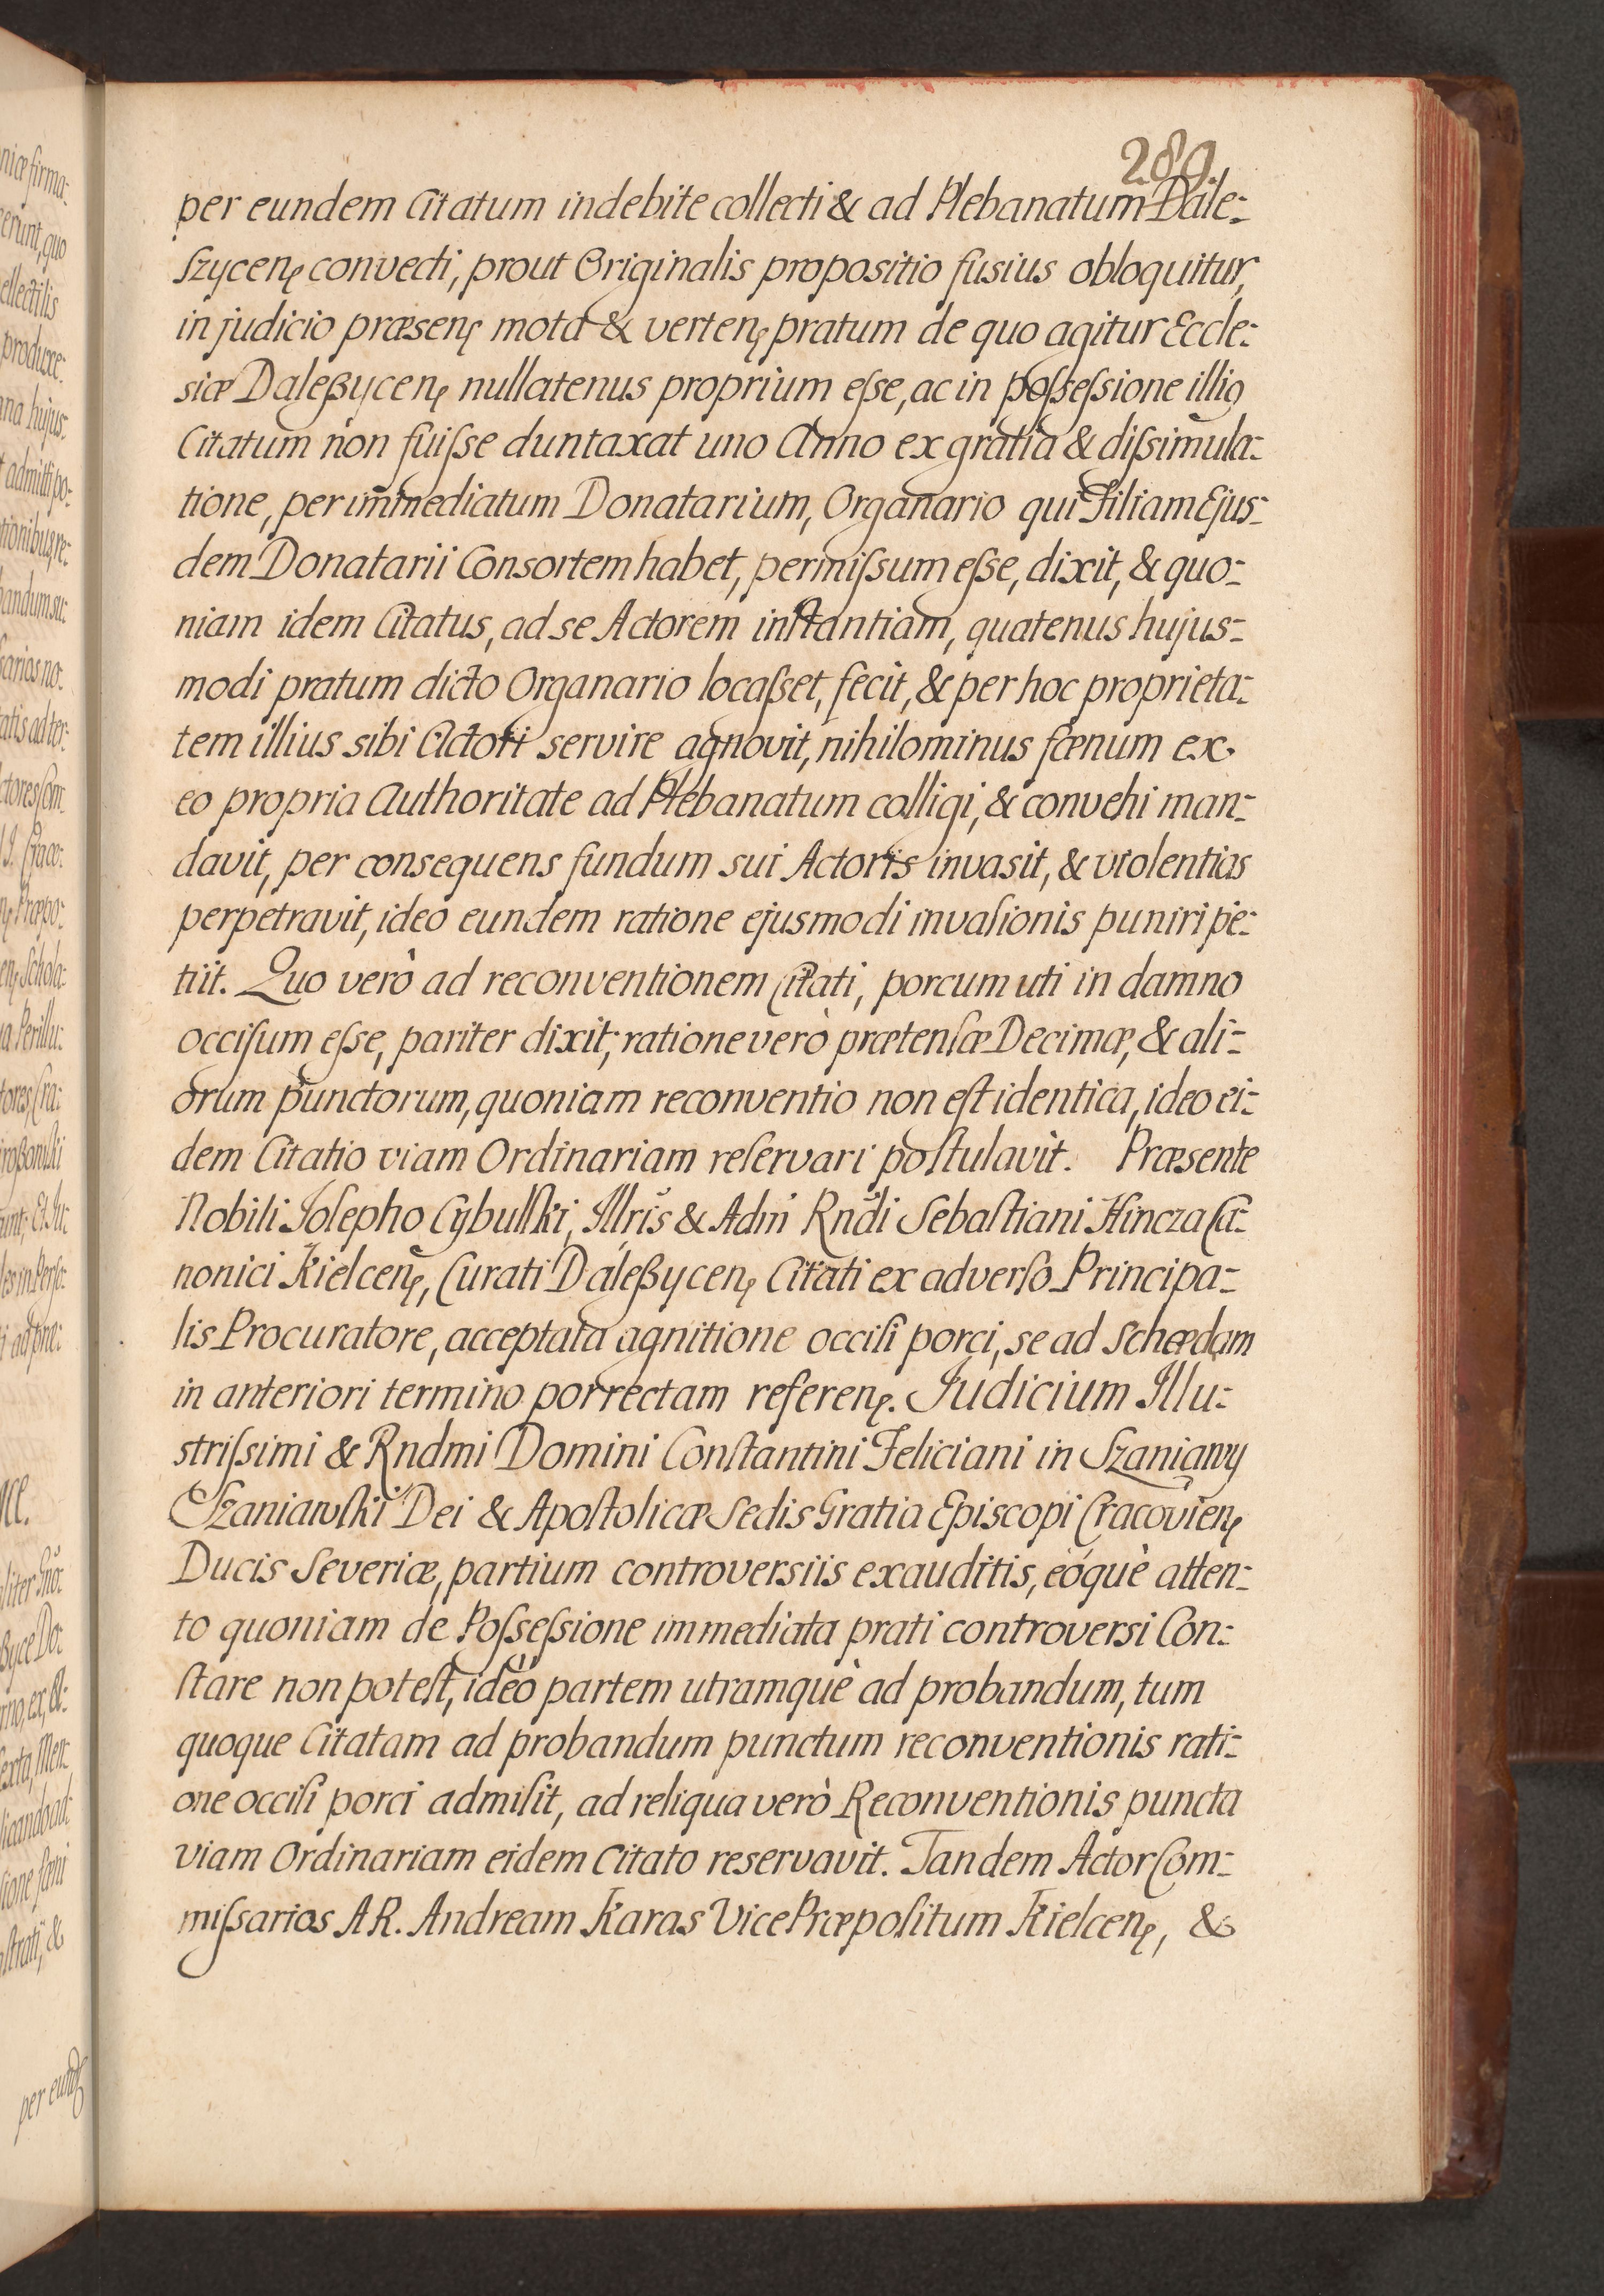 289.
per eundem Citatum indebite collecti & ad Plebanatum Dale-
ſzycenȩ convecti, prout Originalis propositio fusius obloquitur,
in judicio præsenȩ mota & vertenȩ pratum de quo agitur Eccle-
siæ Daleßycenȩ nullatenus proprium eſse, ac in poſseſsione illiꝯ
Citatum non fuiſse duntaxat uno Anno ex gratia & diſsimula-
tione, per immediatum Donatarium, Organario qui Filiam Ejus-
dem Donatarii Consortem habet, permiſsum eſse, dixit, & quo-
niam idem Citatus, ad se Actorem inſtantiam, quatenus hujus-
modi pratum dicto Organario locaßet, fecit, & per hoc proprieta-
tem illius sibi Actori servire agnovit, nihilominus fœnum ex
eo propria Authoritate ad Plebanatum colligi, & convehi man-
davit, per consequens fundum sui Actoris invasit, & violentias
perpetravit, ideo eundem ratione ejusmodi invaſionis puniri pe-
tiit. Quo verò ad reconventionem Citati, porcum uti in damno
occiſum eſse, pariter dixit; ratione verò prætenſæ Decimæ, & ali-
orum punctorum, quoniam reconventio non eſt identica, ideo ei-
dem Citatio viam Ordinariam reſervari poſtulavit. Præsente
Nobili Joſepho Cybulſki, Illris & Adm Rndi Sebaſtiani Hincza Ca-
nonici Kielcenȩ, Curati Daleßycenȩ Citati ex adverſo Principa-
lis Procuratore, acceptata agnitione occiſi porci, se ad Schædam
in anteriori termino porrectam referenȩ. Judicium Illu-
striſsimi & Rndmi Domini Conſtantini Feliciani in Szaniawy
Szaniawſki Dei & Apoſtolicæ Sedis Gratia Episcopi Cracovienȩ
Ducis Severiæ, partium controversiis exauditis, eóquè atten-
to quoniam de Poſseſsione immediata prati controversi Con-
ſtare non poteſt, ideò partem utramquè ad probandum, tum
quoque Citatam ad probandum punctum reconventionis rati-
one occiſi porci admiſit, ad reliqua verò Reconventionis puncta
viam Ordinariam eidem Citato reservavit. Tandem Actor Com-
miſsarios A R. Andream Karas Vice Præpoſitum Kielcenȩ, &